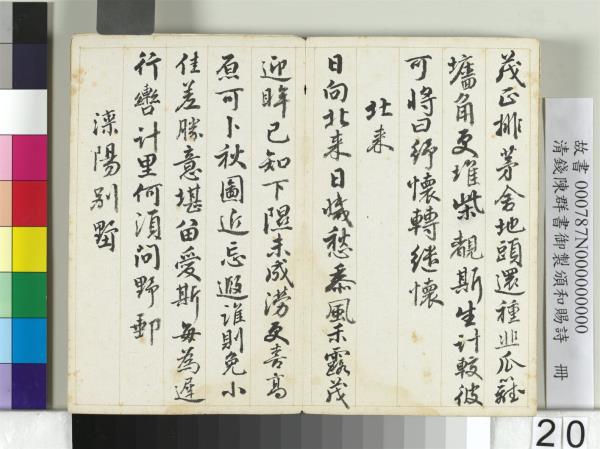 茂正排茅舍地頭還種韭瓜籬
壚角更堆柴覯斯生計較彼
可將曰紓懷轉懷
北来
日向北来日減愁黍風禾露茂
迎眸已知下隰未成澇更喜高
原可卜秋圖近忘遐誰則免小
佳差勝意堪留愛斯每為遲
行轡計里何須問野郵
灤陽別墅
故書 000787N000000000
清錢陳群書御製頒和賜詩 冊
20